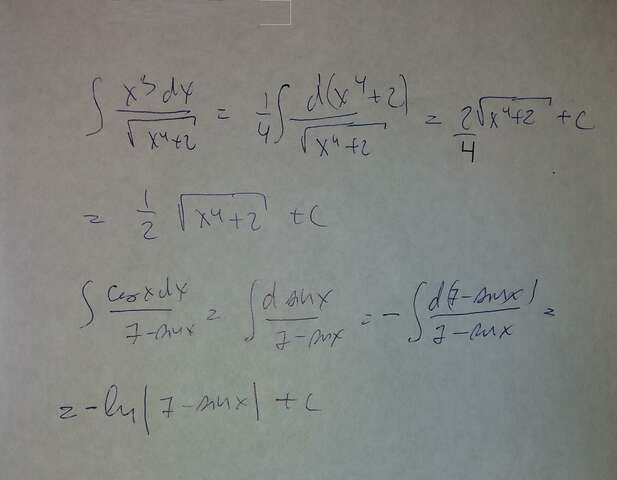 ∫ x³dx/√(x⁴+2) = 1/4 ∫ d(x⁴+2)/√(x⁴+2) = 2/4 √(x⁴+2) + C
= 1/2 √(x⁴+2) + C
∫ cosxdx/(7-sinx) = ∫ dsinx/(7-sinx) = -∫ d(7-sinx)/(7-sinx) =
= -ln|7-sinx| + C